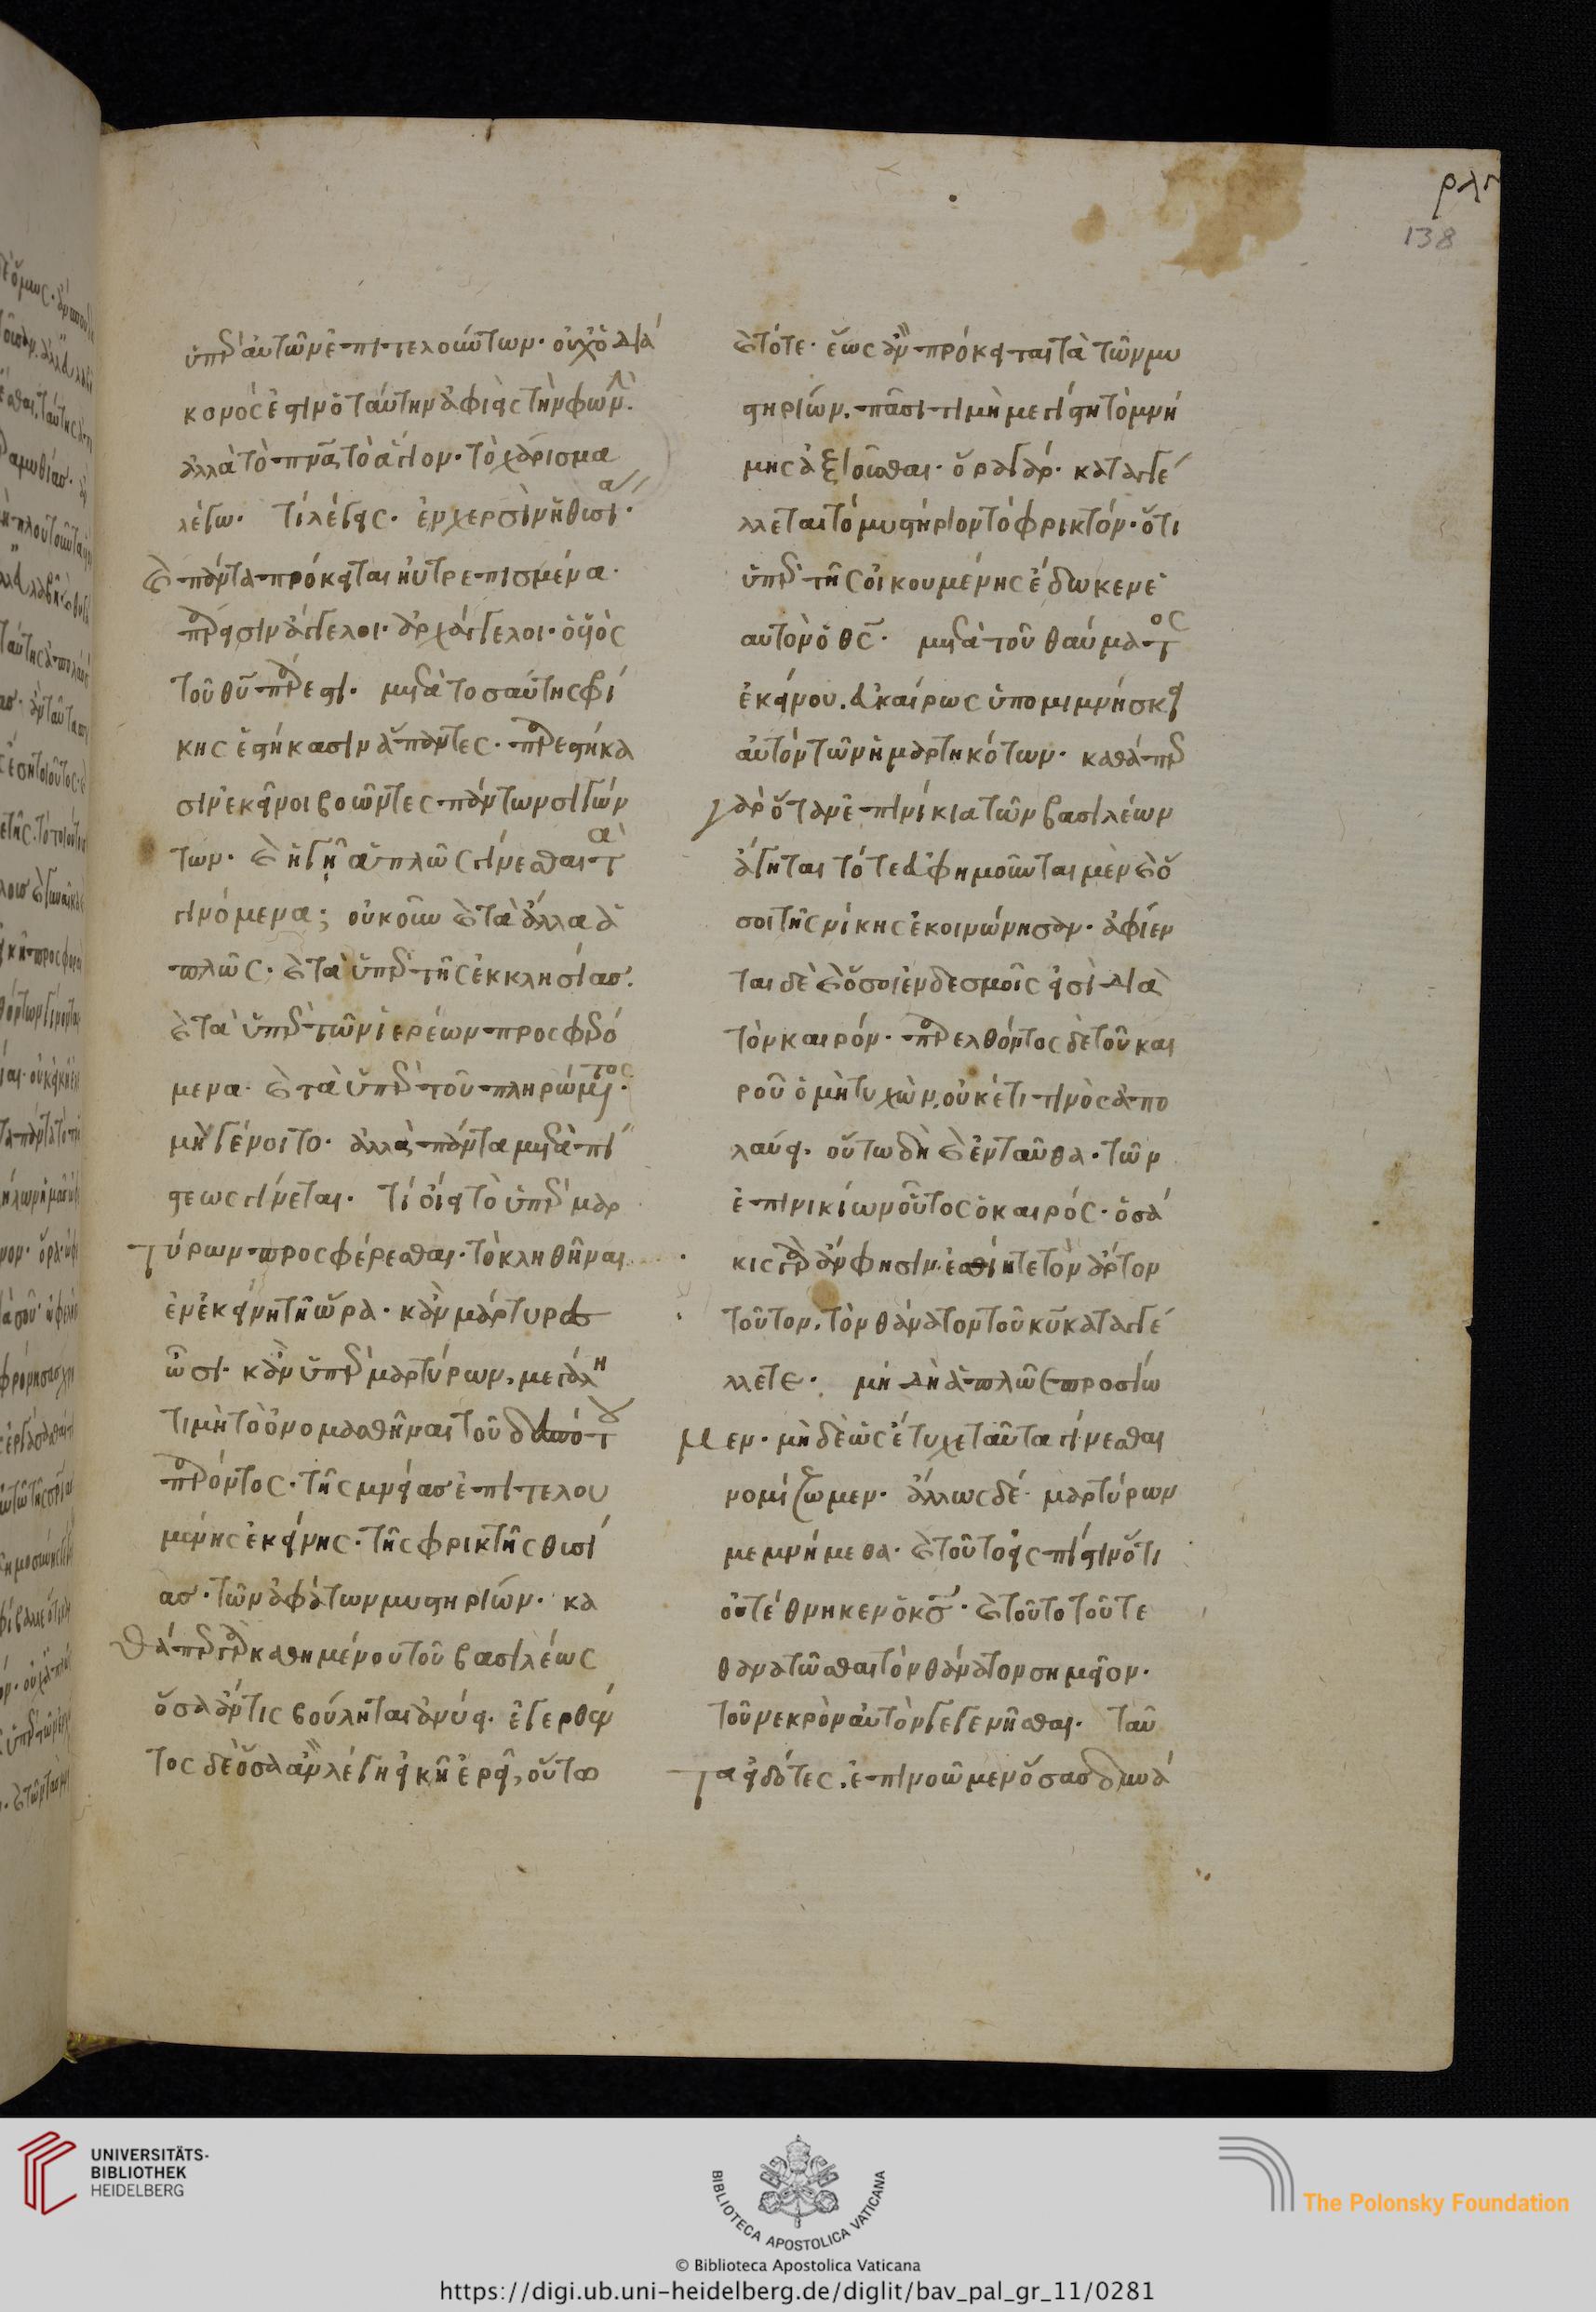 ρλη
138
ὑπὲρ αὐτῶν ἐπιτελούντων· οὐχ ὁ διά
κονός ἐστιν ὁ ταύτην ἀφιεὶς τὴν φωνήν·
ἀλλὰ τὸ πνα τὸ ἅγιον· τὸ χάρισμα
λέγω· τί λέγεις· ἐν χερσὶν ἡ θυσία·
καὶ πάντα πρόκειται ηὐτρεπισμένα·
πάρεισιν ἄγγελοι· ἀρχάγγελοι· ὁ υἱὸς
τοῦ θυ πάρεστι· μετὰ τοσαύτης φρί
κης ἑστήκασιν ἅπαντες· παρεστήκα
σιν ἐκεῖνοι βοῶντες πάντων σιγών
των· καὶ ἡγῇ ἁπλῶς γίνεσθαι τὰ
γινόμενα; οὐκοῦν καὶ τὰ ἄλλα ἁ
πλῶς· καὶ τὰ ὑπὲρ τῆς ἐκκλησίας·
καὶ τὰ ὑπὲρ τῶν ἱερέων προσφερό
μενα· καὶ τὰ ὑπὲρ τοῦ πληρώματος·
μὴ γένοιτο· ἀλλὰ πάντα μετὰ πί
στεως γίνεται· τί οἴει τὸ ὑπὲρ μαρ
τύρων προσφέρεσθαι· τὸ κληθῆναι
ἐν ἐκείνῃ τῇ ὥρα· κἂν μάρτυρες
ὦσι· κἂν ὑπὲρ μαρτύρων, μεγάλη
τιμὴ τὸ ὀνομασθῆναι τοῦ δεσπότου
παρόντος· τῆς μνείας ἐπιτελου
μένης ἐκείνης· τῆς φρικτῆς θυσί
ας· τῶν ἀφάτων μυστηρίων· κα
θάπερ γὰρ καθημένου τοῦ βασιλέως
ὅσα ἄν τις βούληται ἀνύει· ἐγερθέν
τος δὲ ὅσα ἂν λέγῃ εἰκῆ ἐρεῖ, οὕτω
καὶ τότε· ἕως ἂν προκειται τὰ τῶν μυ
στηρίων· πᾶσι τιμὴ μεγίστη τὸ μνή
μης ἀξιοῦσθαι· ὅρα γάρ· καταγγέ
λλεται τὸ μυστήριον τὸ φρικτόν· ὅτι
ὑπὲρ τῆς οἰκουμένης ἔδωκεν ἑ
αυτὸν ὁ θς· μετὰ τοῦ θαύματος
ἐκείνου. εὐκαίρως ὑπομιμνήσκει
αὐτὸν τῶν ἡμαρτηκότων· καθάπερ
γὰρ ὅταν ἐπινίκια τῶν βασιλέων
ἄγηται τότε εὐφημοῦνται μὲν καὶ ὅ
σοι τῆς νίκης ἐκοινώνησαν· ἀφίεν
ται δὲ καὶ ὅσοι ἐν δεσμοῖς εἰσὶ διὰ
τὸν καιρόν· παρελθόντος δὲ τοῦ και
ροῦ ὁ μὴ τυχὼν, οὐκέτι τινὸς ἀπο
λαύει· οὕτω δὴ καὶ ἐνταῦθα· τῶν
ἐπινικίων οὗτος ὁ καιρός· ὁσά
κις γὰρ ἄν φησιν ἐσθίητε τὸν ἄρτον
τοῦτον, τὸν θάνατον τοῦ κυ καταγγέ
λλετε· μὴ δὴ ἁπλῶς προσίω
μεν· μὴ δὲ ὡς ἔτυχε ταῦτα γίνεσθαι
νομίζωμεν· ἄλλως δέ· μαρτύρων
μεμνήμεθα· καὶ τοῦτο εἰς πίστιν ὅτι
οὐ τέθνηκεν ὁ κς· καὶ τοῦτο τοῦ τε
θανατῶσθαι τὸν θάνατον σημεῖον·
τοῦ νεκρὸν αὐτὸν γεγενῆσθαι· ταῦ
τα εἰδότες, ἐπινοῶμεν ὅσας δυνά
UNIVERSITÄTS-
BIBLIOTHEK
HEIDELBERG
BIBLIOTECA APOSTOLICA VATICANA
The Polonsky Foundation
© Biblioteca Apostolica Vaticana
https://digi.ub.uni-heidelberg.de/diglit/bav_pal_gr_11/0281